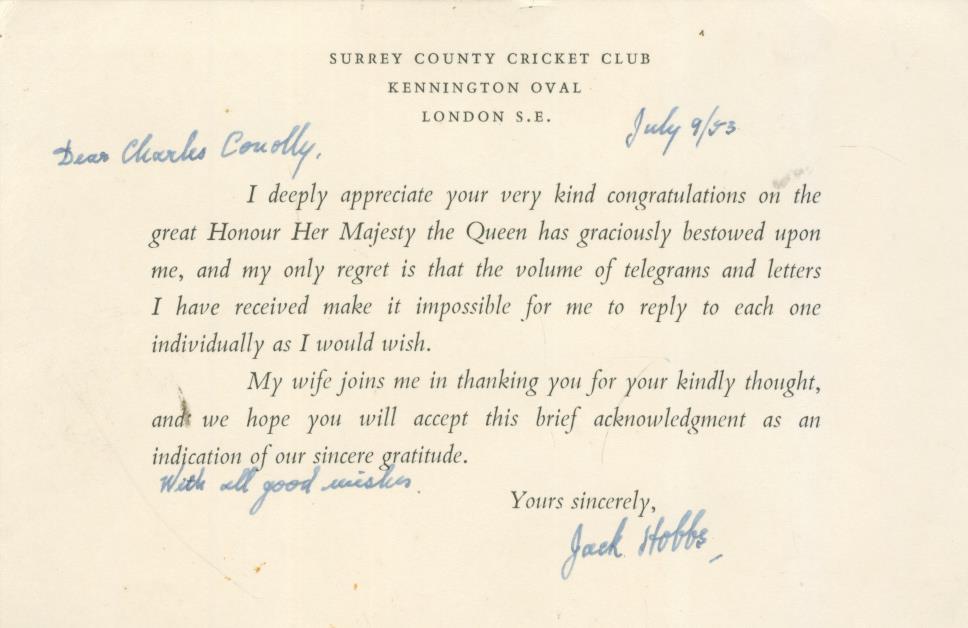 SURREY COUNTY CRICKET CLUB
KENNINGTON OVAL
LONDON S.E.
July 9/53
Dear Charles Conolly,
I deeply appreciate your very kind congratulations on the
great Honour Her Majesty the Queen has graciously bestowed upon
me, and my only regret is that the volume of telegrams and letters
I have received make it impossible for me to reply to each one
individually as I would wish.
My wife joins me in thanking you for your kindly thought,
and we hope you will accept this brief acknowledgment as an
indication of our sincere gratitude.
With all good wishes.
Yours sincerely,
Jack Hobbs